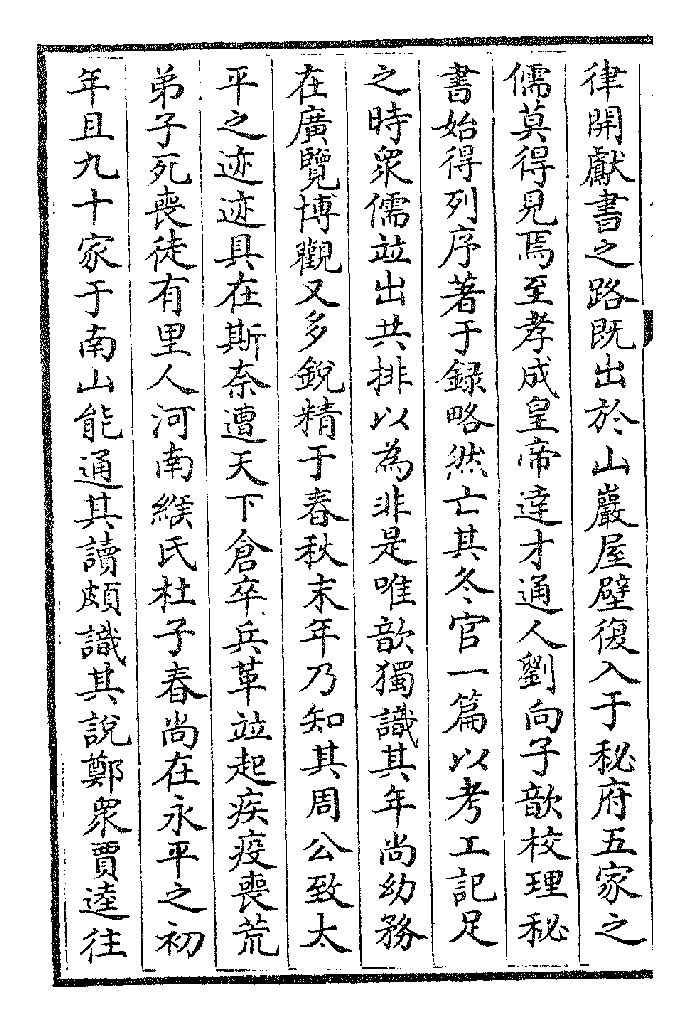 律開獻書之路既出於山巖屋壁復入于秘府五家之
儒莫得見焉至孝成皇帝達才通人劉向子歆校理秘
書始得列序著于録略然亡其冬官一篇以考工記足
之時衆儒竝出共排以為非是唯歆獨識其年尚幼務
在廣覽博觀又多銳精于春秋末年乃知其周公致太
平之迹迹具在斯奈遭天下倉卒兵革竝起疾疫喪荒
弟子死喪徒有里人河南緱氏杜子春尚在永平之初
年且九十家于南山能通其讀頗識其說鄭衆賈逵往